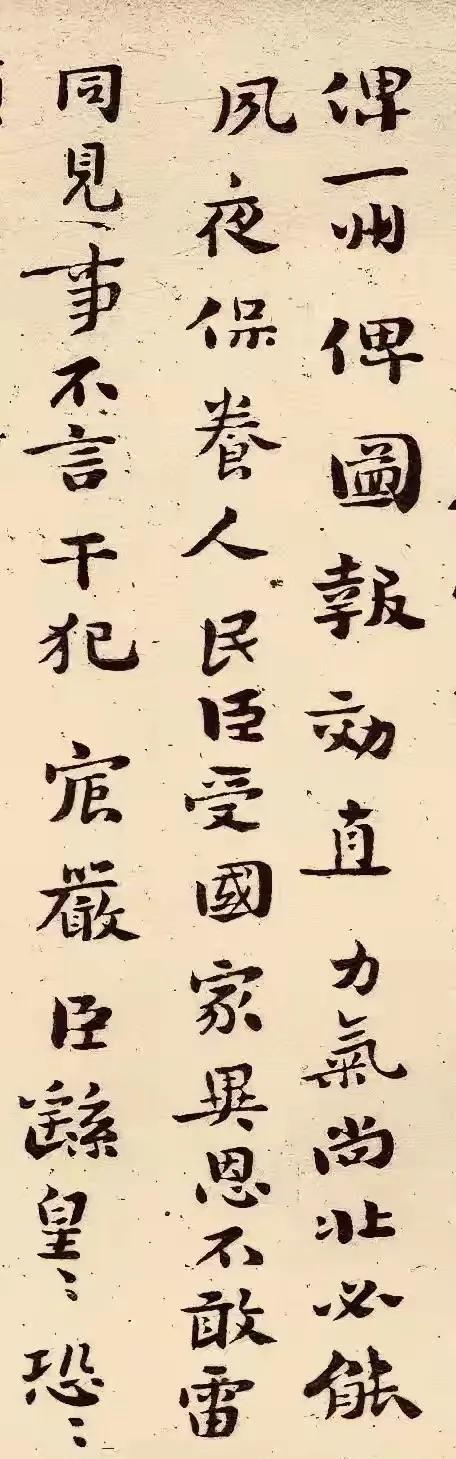 俾一州俾圖報効直力氣尚壯必能
夙夜保養人民臣受國家異恩不敢雷
同見事不言干犯宸嚴臣繇皇〻恐〻